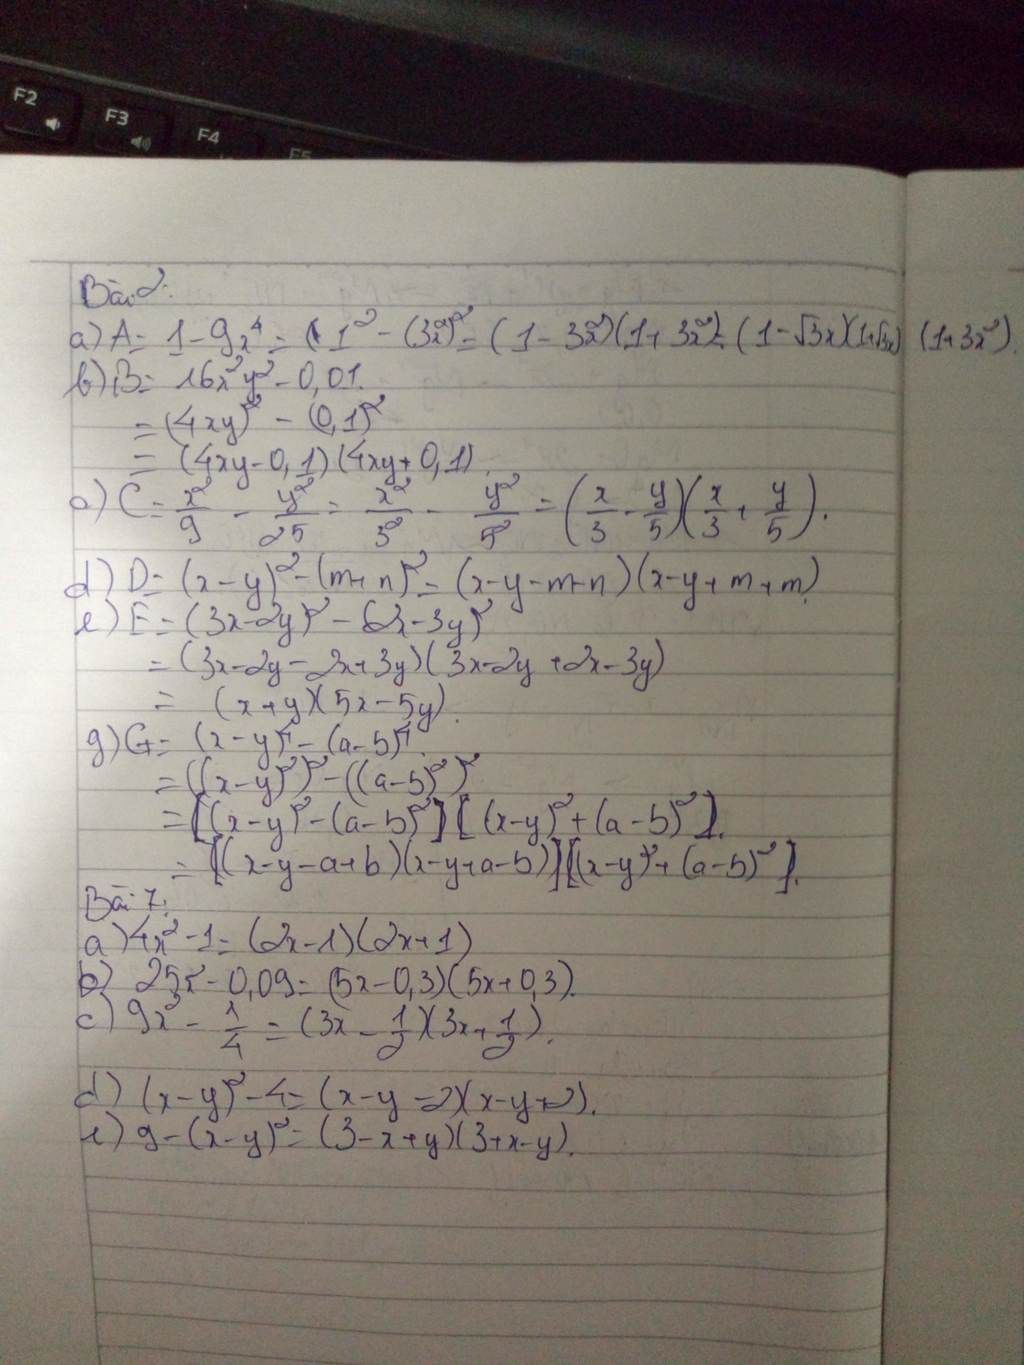 F2
F3
F4
F5
Bài 2:
a) A = 1 - 9x⁴ = 1² - (3x²)² = (1 - 3x²)(1 + 3x²) = (1 - √3x)(1+√3x) (1+3x²).
b) B = 16x²y² - 0,01.
= (4xy)² - (0,1)²
= (4xy - 0,1)(4xy + 0,1).
c) C = x²/9 - y²/25 = x²/3² - y²/5² = (x/3 - y/5)(x/3 + y/5).
d) D = (x - y)² - (m + n)² = (x - y - m - n)(x - y + m + m)
e) E = (3x - 2y)² - (2x - 3y)²
= (3x - 2y - 2x + 3y)(3x - 2y + 2x - 3y)
= (x + y)(5x - 5y).
g) G = (x - y)⁴ - (a - b)⁴.
= ((x - y)²)² - ((a - b)²)²
= [(x - y)² - (a - b)²] [(x - y)² + (a - b)²].
= [(x - y - a + b)(x - y + a - b)][(x - y)² + (a - b)²].
Bài 7:
a) 4x² - 1 = (2x - 1)(2x + 1)
b) 25x² - 0,09 = (5x - 0,3)(5x + 0,3).
c) 9x² - 1/4 = (3x - 1/2)(3x + 1/2).
d) (x - y)² - 4 = (x - y - 2)(x - y + 2).
e) 9 - (x - y)² = (3 - x + y)(3 + x - y).